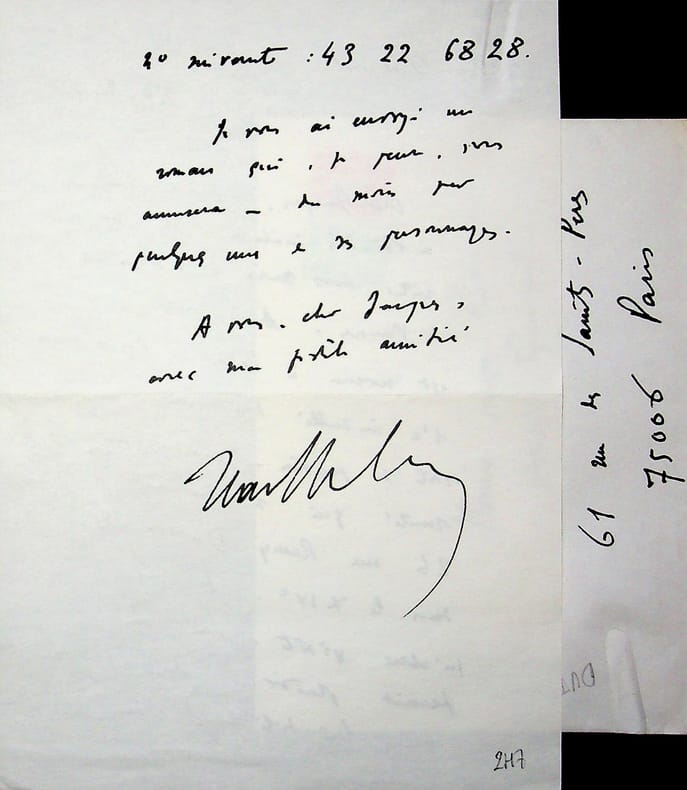 n° suivant : 43 22 68 28.
Je vous ai envoyé un
roman qui, je pense, vous
amusera — du moins par
quelques uns de ses personnages.
A vous, cher Jacques,
avec ma fidèle amitié
61 rue des Saints-Pères
75006 Paris
2H7